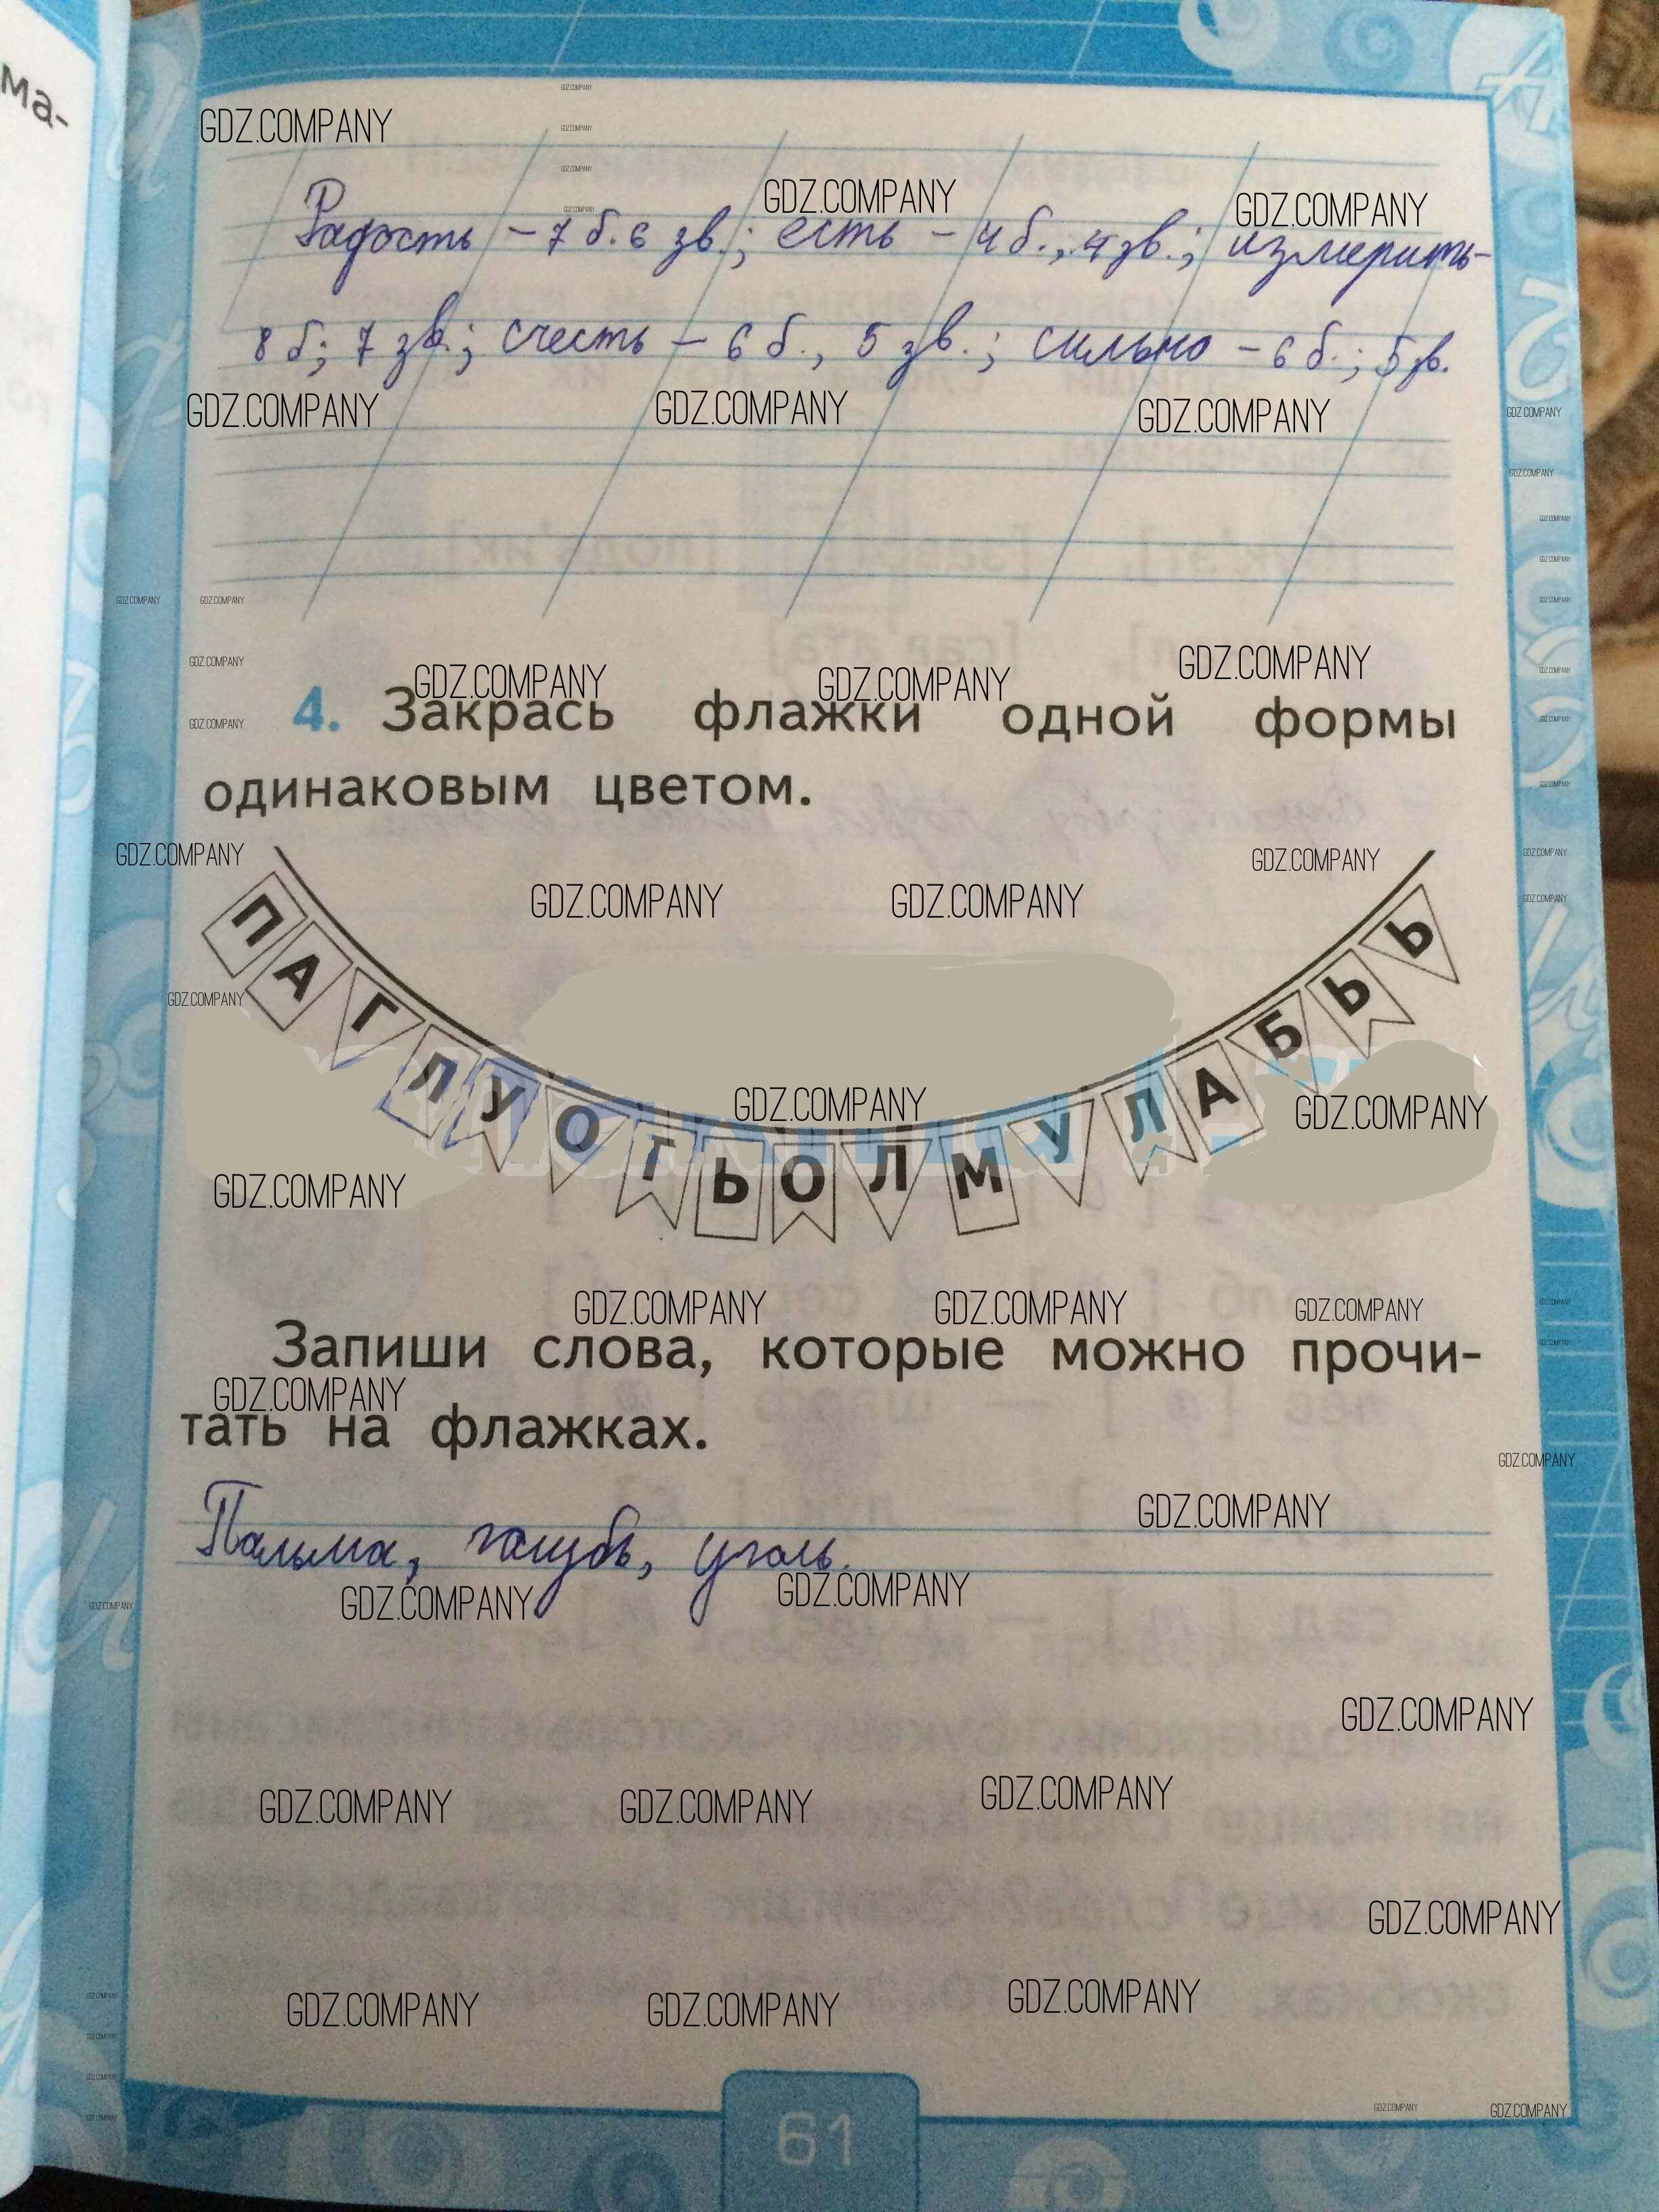 ма-
GDZ.COMPANY
Радость - 7 б. 6 зв.; есть - 4 б., 4 зв.; измерить-
8 б; 7 зв.; счесть - 6 б., 5 зв.; сильно - 6 б.; 5 зв.
4. Закрась флажки одной формы
одинаковым цветом.
П А Г Л У О Г Ь О Л М У Л А Б Ь Ь
Запиши слова, которые можно прочи-
тать на флажках.
Пальма, голубь, уголь.
61